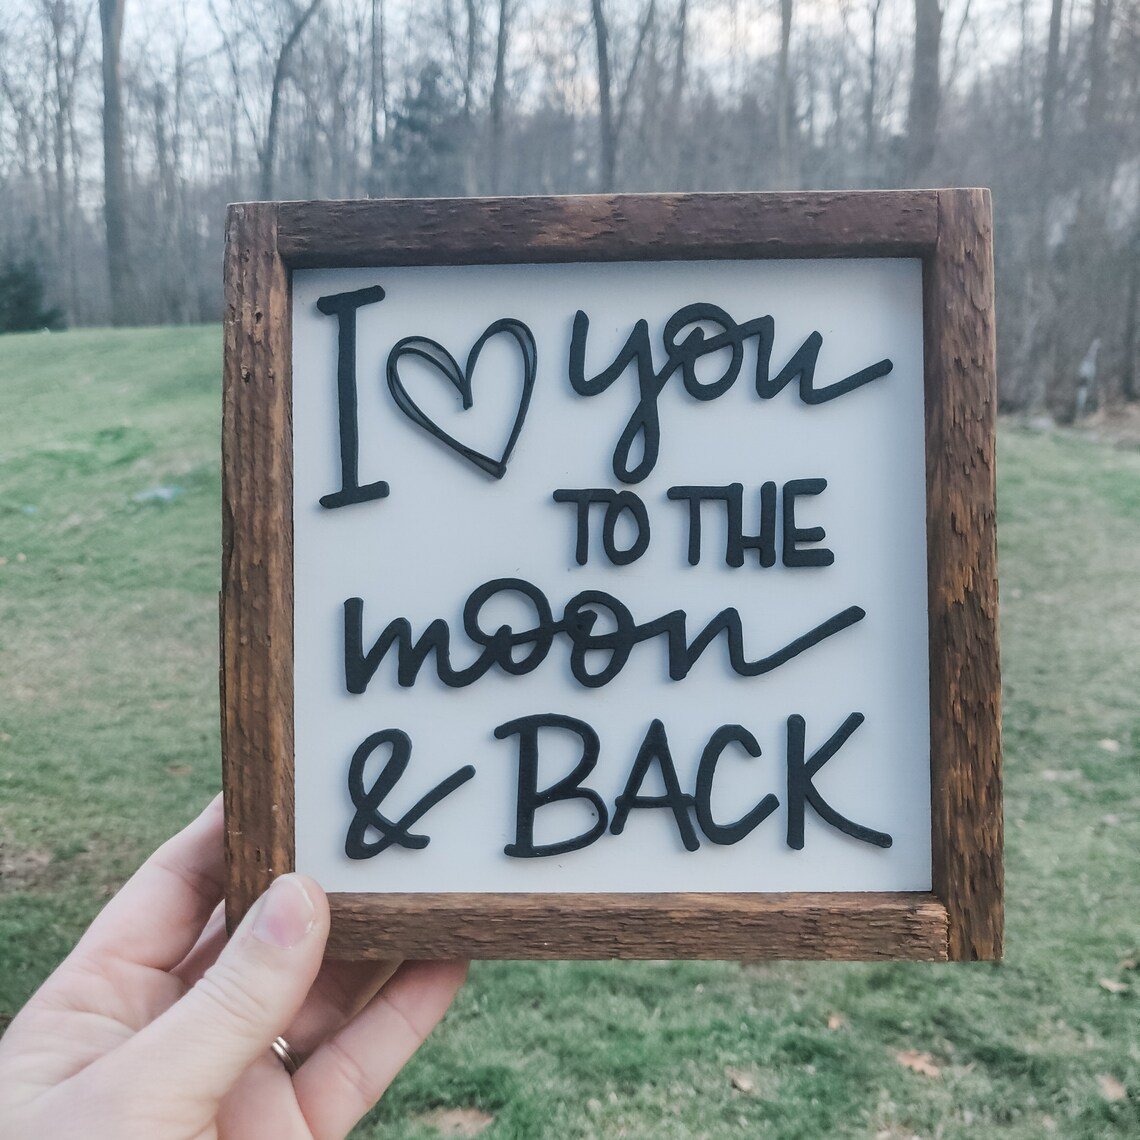 I ♡ you
TO THE
moon
& BACK